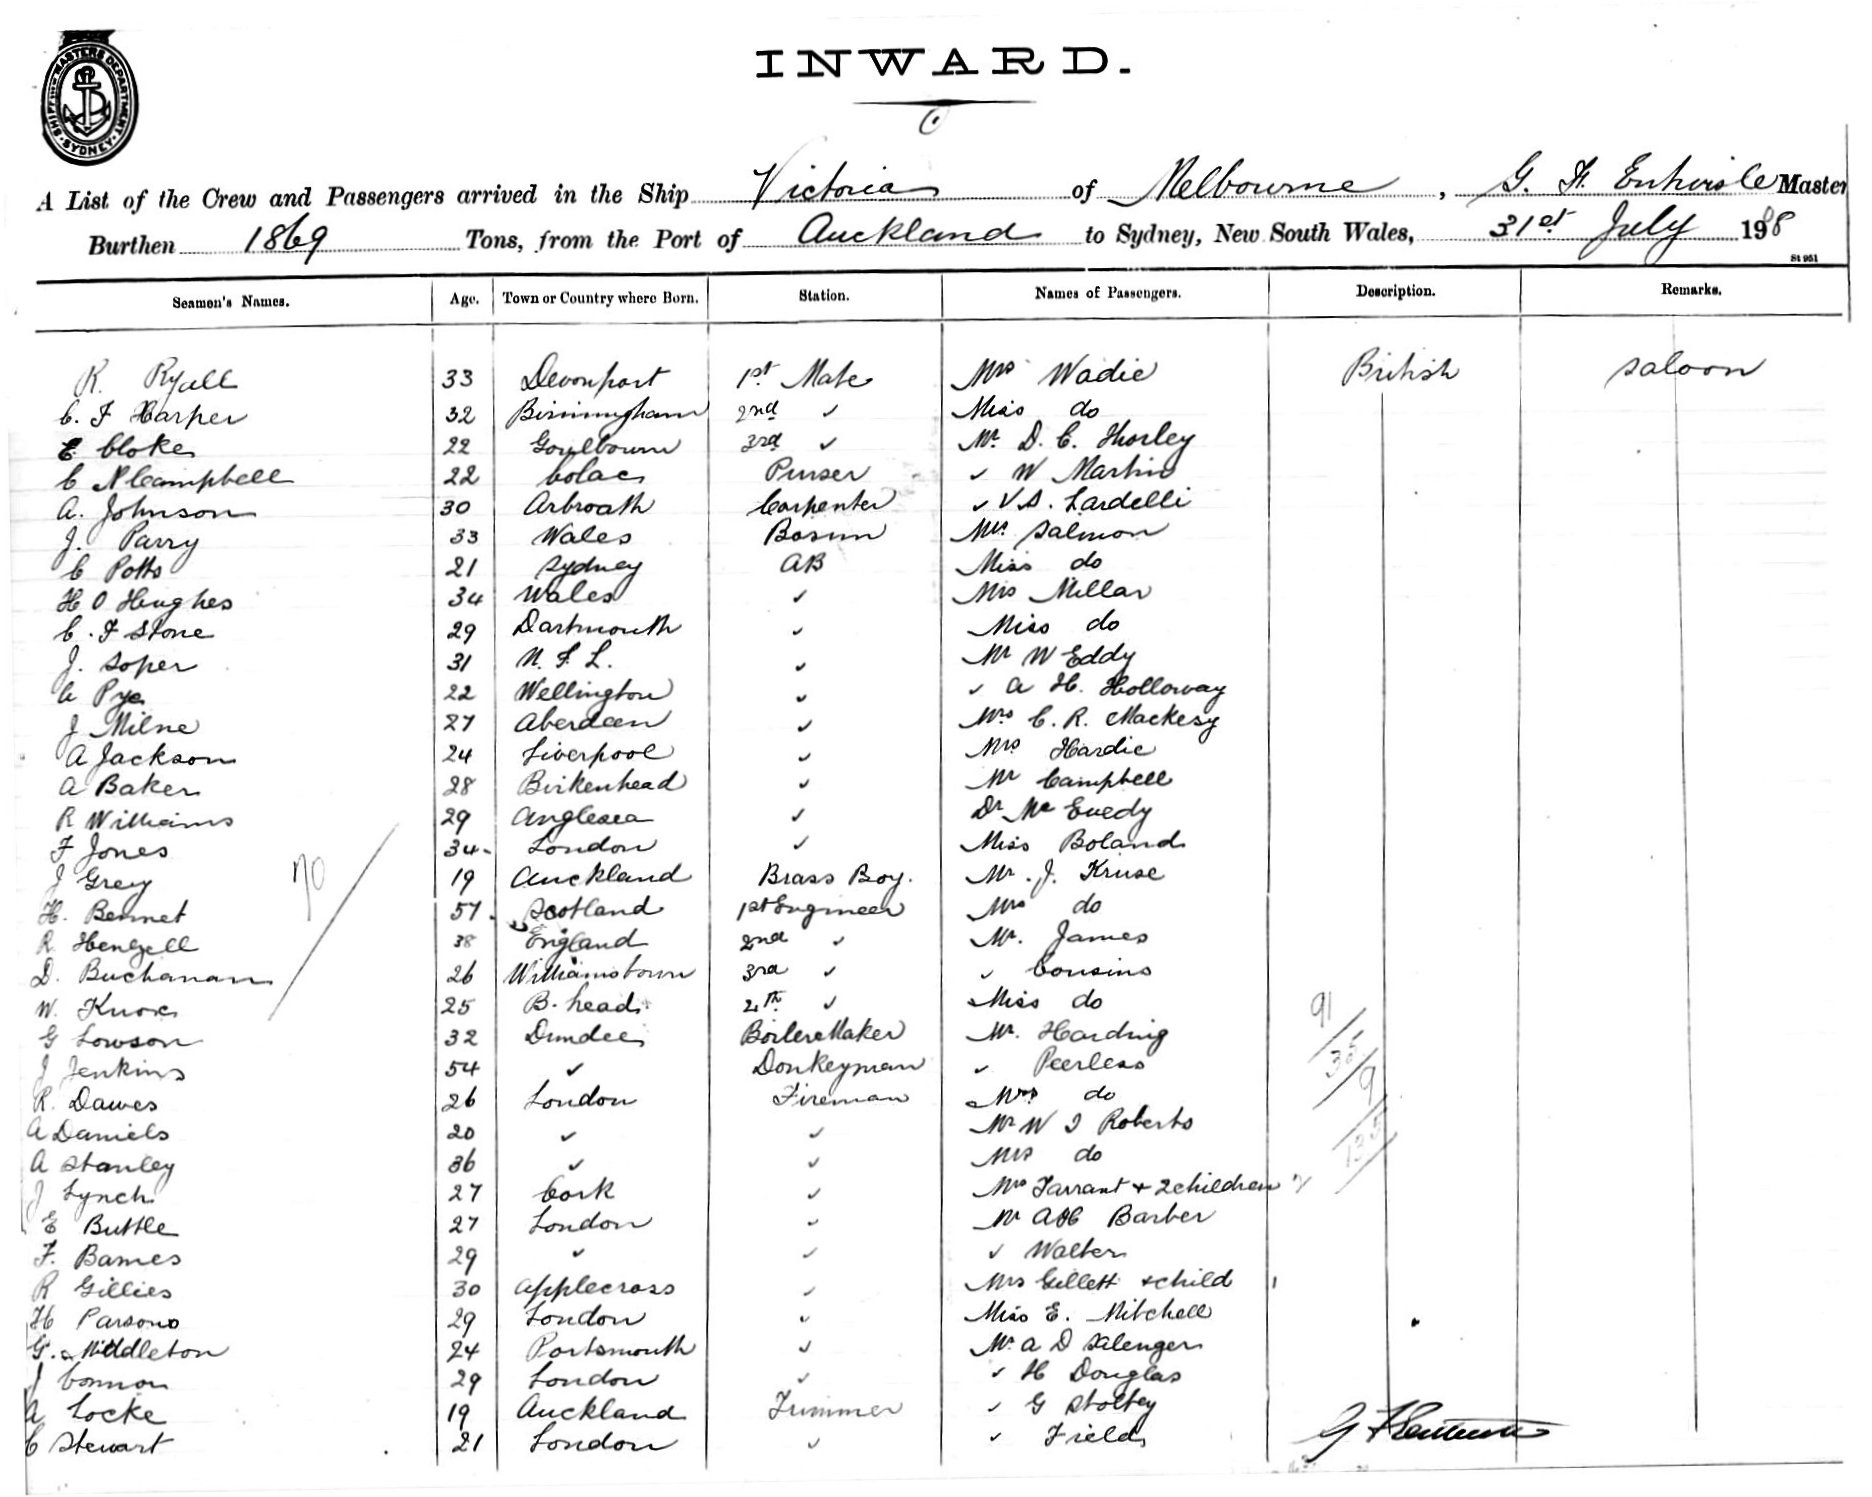 SHIPPING MASTERS DEPARTMENT · SYDNEY ·
INWARD.
A List of the Crew and Passengers arrived in the Ship Victoria of Melbourne, G. F. Entwisle Master
Burthen 1869 Tons, from the Port of Auckland to Sydney, New South Wales, 31st July 1988
St 951
Seamen's Names. Age. Town or Country where Born. Station. Names of Passengers. Description. Remarks.
R. Ryall 33 Devonport 1st Mate Mrs Wadie British Saloon
C. F Harper 32 Birmingham 2nd ✓ Miss do
E Cloke 22 Goulbourn 3rd ✓ Mr. D. C. Thorley
C N Campbell 22 Colac Purser ✓ W Martin
A. Johnson 30 Arbroath Carpenter ✓ V. S. Lardelli
J. Parry 33 Wales Bosun Mrs. Salmon
C Potts 21 Sydney AB Miss do
H O Hughes 34 Wales ✓ Mrs Millar
C. F Stone 29 Dartmouth ✓ Miss do
J. Soper 31 N. F. L. ✓ Mr W Eddy
C Pye 22 Wellington ✓ ✓ A H. Holloway
J Milne 27 Aberdeen ✓ Mrs C. R. Mackesy
A Jackson 24 Liverpool ✓ Mrs Hardie
A Baker 28 Birkenhead ✓ Mr Campbell
R Williams 29 Anglesea ✓ Dr Mc Evedy
F Jones 34 London ✓ Miss Boland
J Grey 19 Auckland Brass Boy. Mr. J. Kruse
70
H. Bennet 57 Scotland 1st Engineer Mrs do
R. Hengell 38 England 2nd ✓ Mr. James
D. Buchanan 26 Williamstown 3rd ✓ ✓ Cousins
W. Knox 25 B. head 4th ✓ Miss do
91
G Lowson 32 Dundee BoilerMaker Mr. Harding
35
J Jenkins 54 ✓ Donkeyman ✓ Peerless
9
R. Dawes 26 London Fireman Mrs do
A Daniels 20 ✓ ✓ Mr W J Roberts
135
A Stanley 36 ✓ ✓ Mrs do
J Lynch 27 Cork ✓ Mrs Tarrant + 2 children 2
E Buttle 27 London ✓ Mr A H Barber
F. Barnes 29 ✓ ✓ ✓ Walter
R Gillies 30 Applecross ✓ Mrs Gillett + child 1
H Parsons 29 London ✓ Miss E. Mitchell
G. Middleton 24 Portsmouth ✓ Mr A D Salenger
J Connon 29 London ✓ ✓ H Douglas
A Locke 19 Auckland Trimmer ✓ G Stoltey
C Stewart 21 London ✓ ✓ Field
G F Entwisle